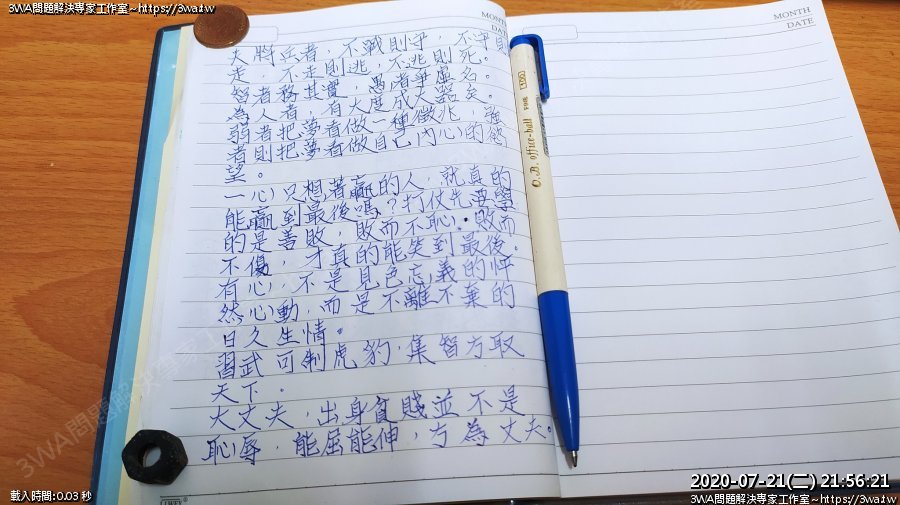 3WA問題解決專家工作室~https://3wa.tw
MONTH
DATE
MONTH
DATE
夫將兵者，不戰則守，不守則
走，不走則逃，不逃則死。
智者務其實，愚者爭虛名。
為人者，有大度成大器矣。
弱者把夢看做一種徵兆，強
者則把夢看做自己內心的慾
望。
一心只想著贏的人，就真的
能贏到最後嗎？打仗先要學
的是善敗，敗而不恥，敗而
不傷，才真的能笑到最後。
有心，不是見色忘義的怦
然心動，而是不離不棄的
日久生情。
習武可制虎豹，集智方取
天下。
大丈夫，出身貧賤並不是
恥辱，能屈能伸，方為丈夫。
O.B. office-ball
載入時間:0.03 秒
2020-07-21(二) 21:56:21
3WA問題解決專家工作室~https://3wa.tw